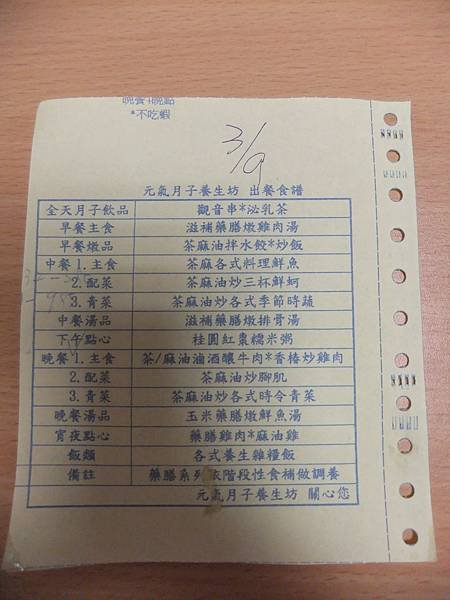 晚餐+晚點
*不吃蝦
3/9
元氣月子養生坊 出餐食譜
全天月子飲品 觀音串*泌乳茶
早餐主食 滋補藥膳燉雞肉湯
早餐燉品 茶麻油拌水餃*炒飯
中餐1.主食 茶麻各式料理鮮魚
2.配菜 茶麻油炒三杯鮮蚵
3.青菜 茶麻油炒各式季節時蔬
中餐湯品 滋補藥膳燉排骨湯
下午點心 桂圓紅棗糯米粥
晚餐1.主食 茶/麻油滷酒釀牛肉*香椿炒雞肉
2.配菜 茶麻油炒腳肌
3.青菜 茶麻油炒各式時令青菜
晚餐湯品 玉米藥膳燉鮮魚湯
宵夜點心 藥膳雞肉*麻油雞
飯類 各式養生雜糧飯
備註 藥膳系列依階段性食補做調養
元氣月子養生坊 關心您